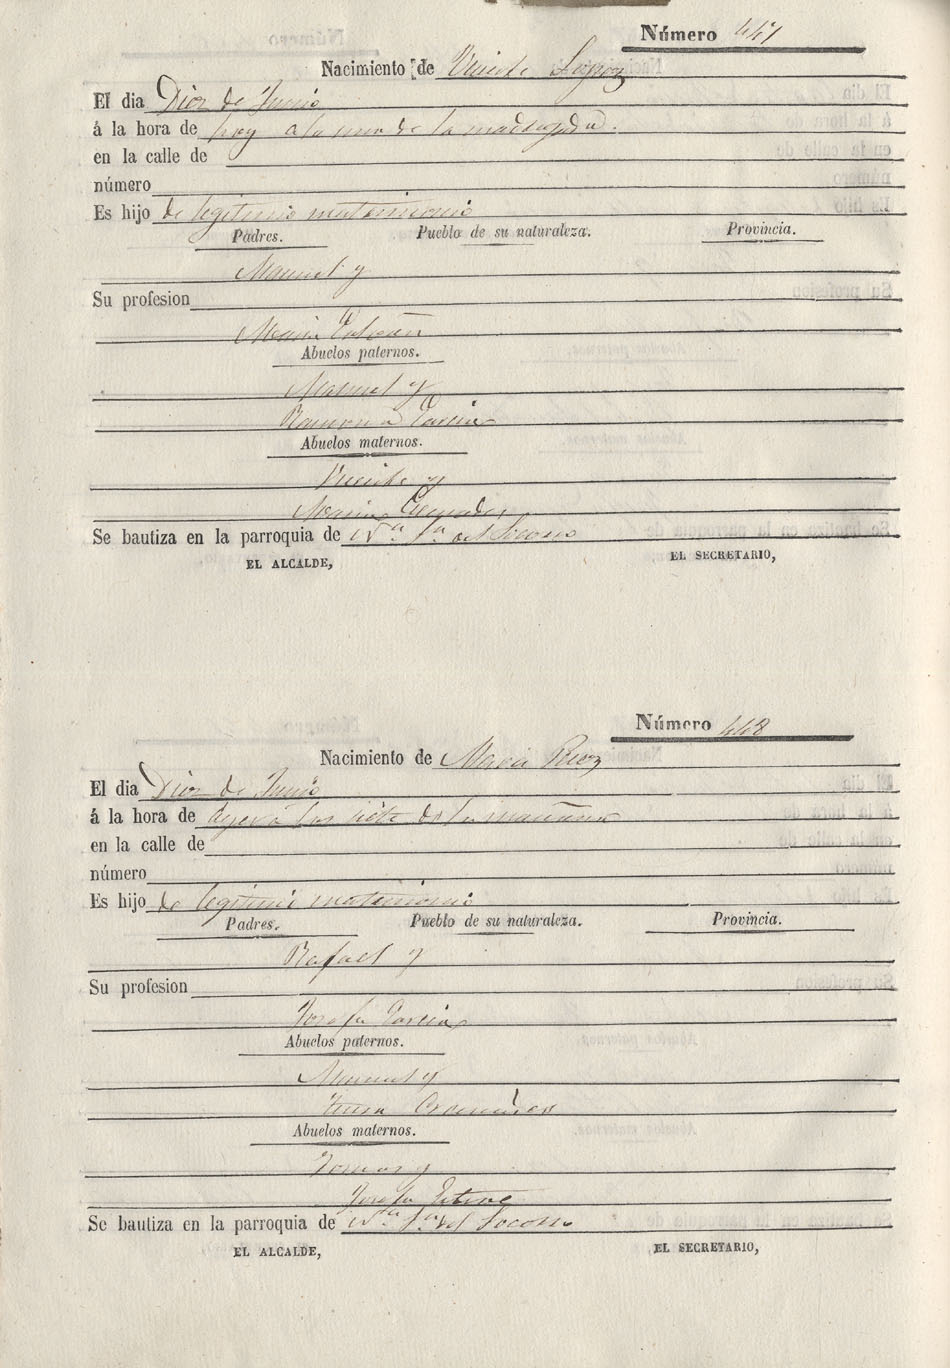 Número 447
Nacimiento de Vicente Lopez
El dia Diez de Junio
á la hora de hoy a la una de la madrugada.
en la calle de
número
Es hijo de legitimo matrimonio
Padres. Pueblo de su naturaleza. Provincia.
Manuel y
Su profesion
Maria
Abuelos paternos.
Manuel y
Ramona Garcia
Abuelos maternos.
Vicente y
Maria
Se bautiza en la parroquia de Nª. Sª. del Socorro
EL ALCALDE, EL SECRETARIO,
Número 448
Nacimiento de Maria
El dia Diez de Junio
á la hora de ayer á las siete de la mañana
en la calle de
número
Es hijo de legitimo matrimonio
Padres. Pueblo de su naturaleza. Provincia.
Rafael y
Su profesion
Josefa Garcia
Abuelos paternos.
Manuel y
Abuelos maternos.
Tomas y
Josefa Esteve
Se bautiza en la parroquia de Nª. Sª. del Socorro
EL ALCALDE, EL SECRETARIO,